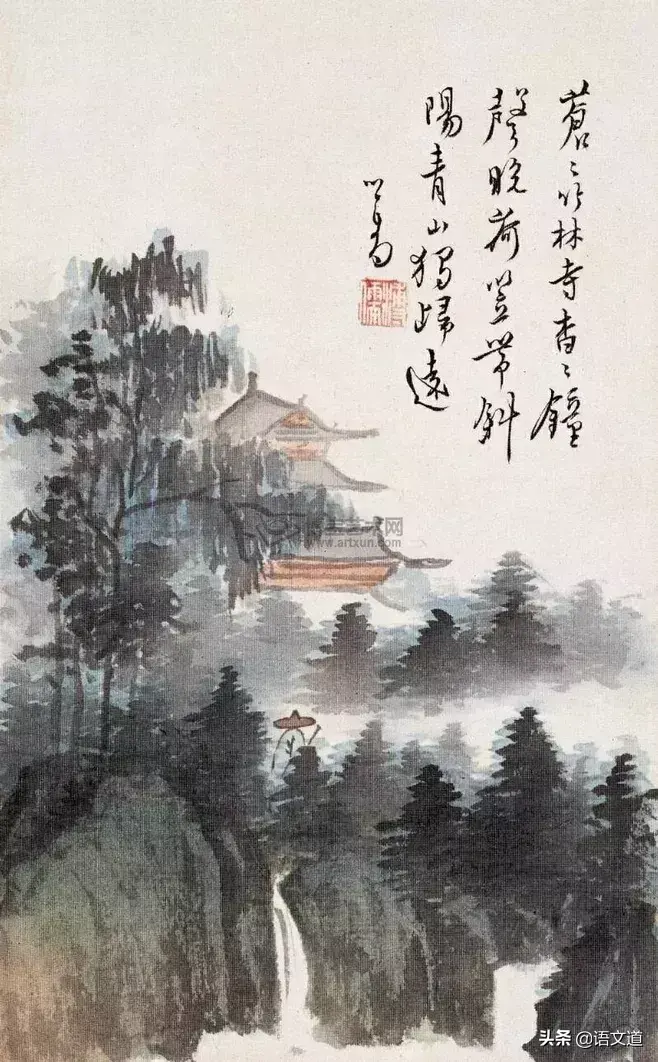 蒼〻竹林寺杳〻鐘
聲晚荷笠帶斜
陽青山獨歸遠
心畬
溥儒
www.artxun.com
头条 @语文道